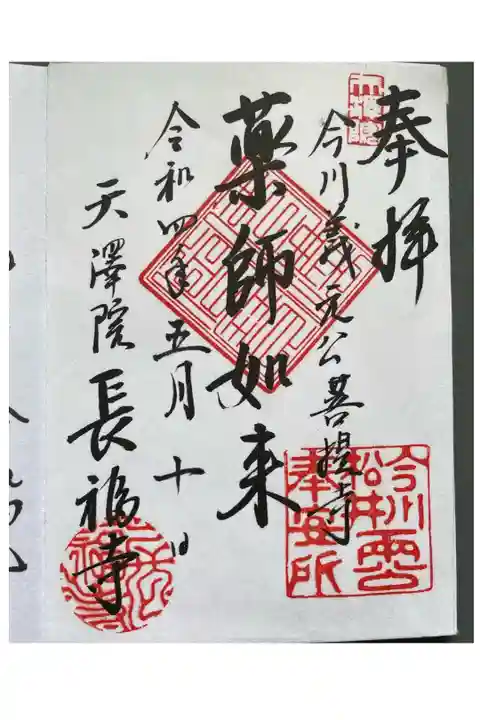 奉拝
今川義元公菩提寺
薬師如来
令和四年五月十日
天澤院
長福寺
今川
松井両公
奉安所